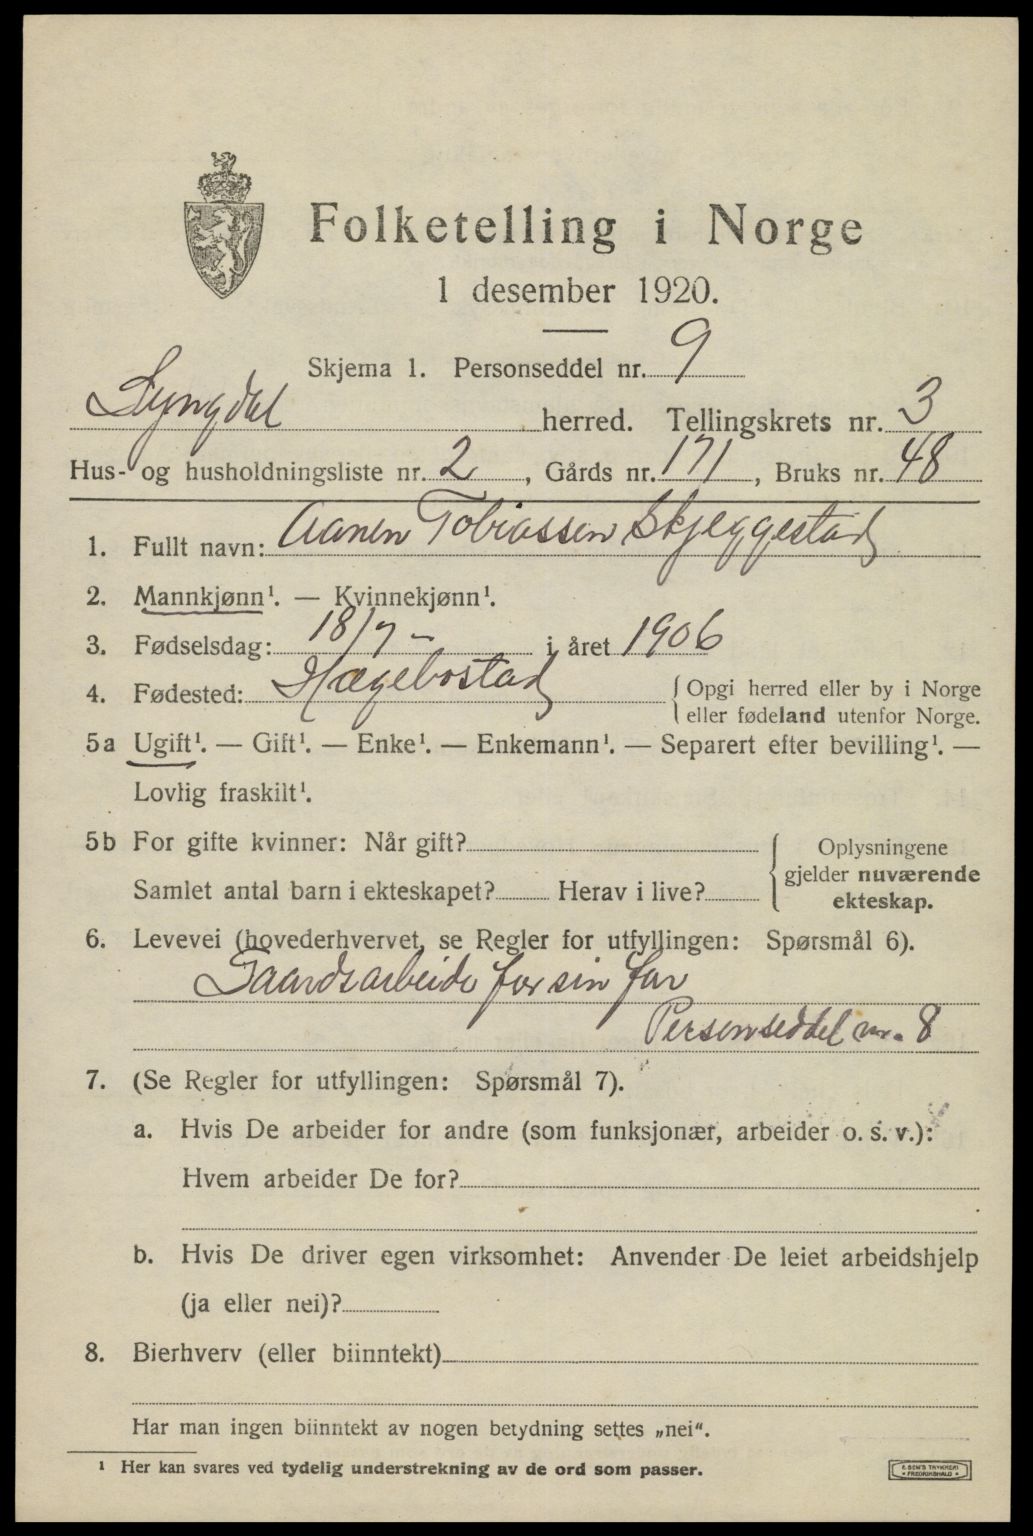 Folketelling i Norge
1 desember 1920.
Skjema 1. Personseddel nr. 9
Lyngdal herred. Tellingskrets nr. 3
Hus- og husholdningsliste nr. 2, Gårds nr. 171, Bruks nr. 48
1. Fullt navn: Aanen Tobiassen Skjeggestad
2. Mannkjønn¹. — Kvinnekjønn¹.
3. Fødselsdag: 18/7 – i året 1906
4. Fødested: Hægebostad { Opgi herred eller by i Norge
eller fødeland utenfor Norge.
5a Ugift¹. — Gift¹. — Enke¹. — Enkemann¹. — Separert efter bevilling¹. —
Lovlig fraskilt¹.
5b For gifte kvinner: Når gift?
Samlet antal barn i ekteskapet? Herav i live?
{ Oplysningene
gjelder nuværende
ekteskap.
6. Levevei (hovederhvervet, se Regler for utfyllingen: Spørsmål 6).
Gaardsarbeide for sin far
Personseddel nr. 8
7. (Se Regler for utfyllingen: Spørsmål 7).
a. Hvis De arbeider for andre (som funksjonær, arbeider o. s. v.):
Hvem arbeider De for?
b. Hvis De driver egen virksomhet: Anvender De leiet arbeidshjelp
(ja eller nei)?
8. Bierhverv (eller biinntekt)
Har man ingen biinntekt av nogen betydning settes „nei“.
¹ Her kan svares ved tydelig understrekning av de ord som passer.
E. SEM'S TRYKKERI
• FREDRIKSHALD •